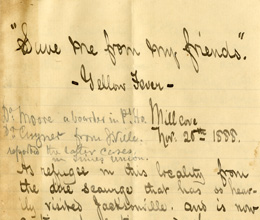 "Save me from my friends".
- Yellow Fever -
Dr. Moore a boarder in
Mill Cove
Dr from J'ville.
Nov. 20th 1888.
reported the latter cases
in union.
As refugee in this locality from
the dire scourge that has so heav-
ily visited Jacksonville, and is now